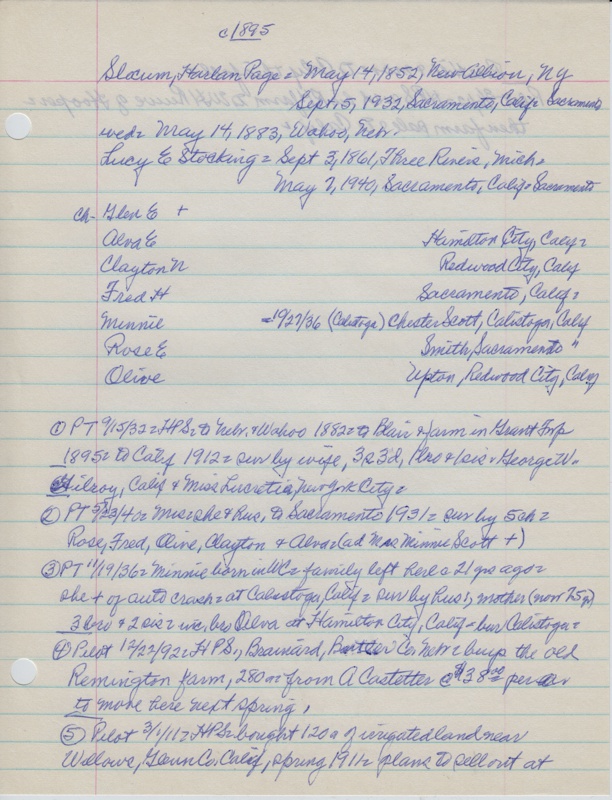 c1895
Slocum, Harlan Page = May 14, 1852, New Albion, NY
Sept. 5, 1932, Sacramento, Calif = Sacramento
wed = May 14, 1883, Wahoo, Nebr.
Lucy E Stocking = Sept 3, 1861, Three Rivers, Mich =
May 2, 1940, Sacramento, Calif = Sacramento
ch - Glen E +
Alva E Hamilton City, Calif =
Clayton N Redwood City, Calif
Fred H Sacramento, Calif =
Minnie = 1927/36 (Calistoga) Chester Scott, Calistoga, Calif
Rose E Smith, Sacramento "
Olive Upton, Redwood City, Calif
① PT 9/15/32 = HPS = to Nebr. & Wahoo 1882 = to Blair & farm in Grant Twp
1895 = to Calif 1912 = sur by wife, 3s 3d, 1 bro & 1 sis = George W =
Gilroy, Calif & Miss Lucretia, New York City =
② PT 5/23/40 = Mrs = she & hus, to Sacramento 1931 = sur by 5 ch =
Rose, Fred, Olive, Clayton & Alva = (ad Mrs Minnie Scott +)
③ PT 11/19/36 = Minnie born in WC = family left here a 21 yrs ago =
she + of auto crash = at Calistoga, Calif = sur by hus, mother (now 75 y)
3 bro & 2 sis = inc. bro Alva at Hamilton City, Calif = bur Calistoga =
④ Pilot 12/22/92 = HPS, Brainard, Butler Co. Nebr = buys the old
Remington farm, 280 ac from A Castetter @ $38.00 per ac
to move here next spring,
⑤ Pilot 3/1/11 = HPS = bought 120 a of irrigated land near
Willows, Glenn Co. Calif, spring 1911 = plans to sell out at